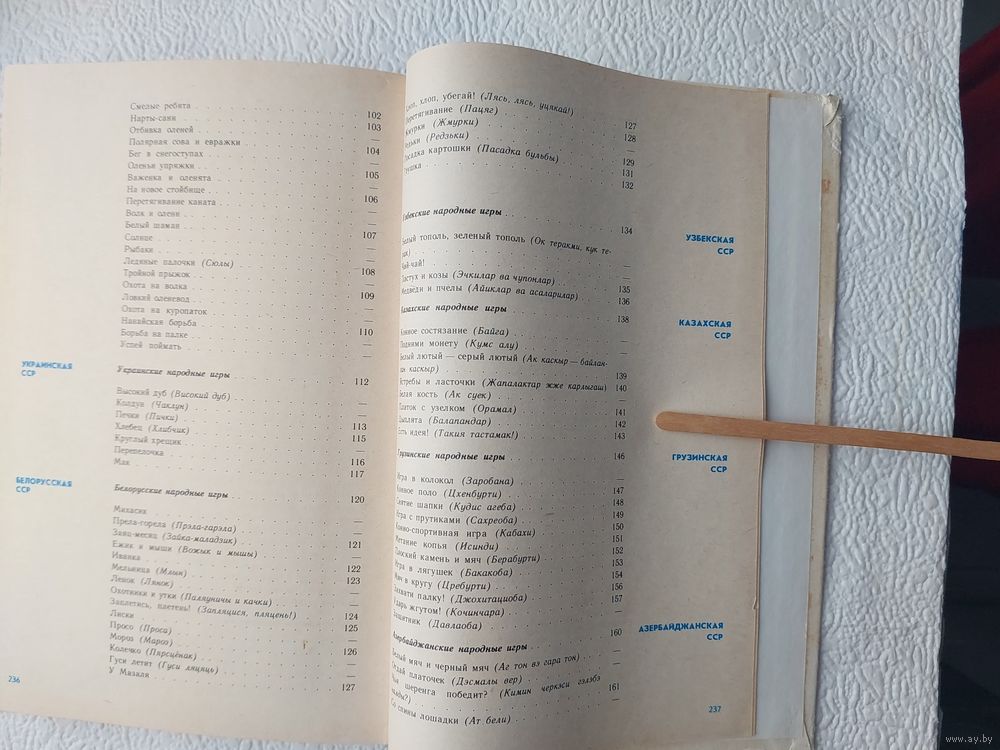 Смелые ребята
Нарты-сани 102
Отбивка оленей 103
Полярная сова и евражки —
Бег в снегоступах 104
Оленьи упряжки —
Важенка и оленята 105
На новое стойбище —
Перетягивание каната 106
Волк и олени —
Белый шаман —
Солнце 107
Рыбаки —
Ледяные палочки (Сюлы) —
Тройной прыжок 108
Охота на волка —
Ловкий оленевод 109
Охота на куропаток —
Нанайская борьба —
Борьба на палке 110
Успей поймать —
УКРАИНСКАЯ
ССР
Украинские народные игры 112
Высокий дуб (Високий дуб) —
Колдун (Чаклун) —
Печки (Пички) —
Хлебец (Хлибчик) 113
Круглый хрещик 115
Перепелочка —
Мак 116
117
БЕЛОРУССКАЯ
ССР
Белорусские народные игры 120
Михасик —
Прела-горела (Прэла-гарэла) —
Заяц-месяц (Зайка-маладзик) —
Ежик и мыши (Вожык и мышы) 121
Иванка —
Мельница (Млын) 122
Ленок (Лянок) 123
Охотники и утки (Паляуничы и качки) —
Заплетись, плетень! (Запляцися, пляцень!) —
Лиски 124
Просо (Проса) 125
Мороз (Мароз) —
Колечко (Пярсцёнак) 126
Гуси летят (Гуси ляцяць) —
У Мазаля —
127
236
хлоп, убегай! (Лясь, лясь, уцякай!)
(Пацяг) 127
(Жмурки) 128
(Редзьки) —
картошки (Пасадка бульбы) 129
131
132
народные игры 134
УЗБЕКСКАЯ
ССР
тополь, зеленый тополь (Ок теракми, кук те-
—
и козы (Эчкилар ва чупонлар) 135
и пчелы (Айиклар ва асаларилар) 136
Казахские народные игры 138
КАЗАХСКАЯ
ССР
состязание (Байга) —
монету (Кумс алу) —
лютый — серый лютый (Ак каскыр — байлан-
каскыр) 139
и ласточки (Жапалактар жже карлыгаш) 140
кость (Ак суек) —
с узелком (Орамал) 141
(Балапандар) 142
идея! (Такия тастамак!) 143
Грузинские народные игры 146
ГРУЗИНСКАЯ
ССР
в колокол (Заробана) —
поло (Цхенбурти) 147
шапки (Кудис агеба) 148
с прутиками (Сахреоба) 149
игра (Кабахи) 150
копья (Исинди) 151
камень и мяч (Берабурти) 152
в лягушек (Бакакоба) 153
в кругу (Цребурти) 154
палку! (Джохитациоба) 156
жгутом! (Кочинчара) 157
(Давлаоба) —
Азербайджанские народные игры 160
АЗЕРБАЙДЖАНСКАЯ
ССР
мяч и черный мяч (Аг топ вэ гара топ) —
платочек (Дэсмалы вер) —
шеренга победит? (Кимин черкэси гэлэбэ
161
спины лошадки (Ат бели) —
237
www.ay.by